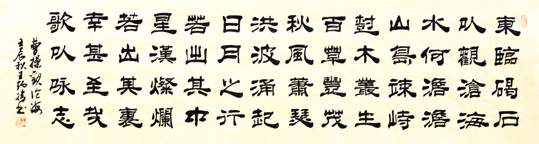 東臨碣石
以觀滄海
水何澹澹
山島竦峙
樹木叢生
百草豐茂
秋風蕭瑟
洪波涌起
日月之行
若出其中
星漢燦爛
若出其裏
幸甚至哉
歌以咏志
曹操觀滄海
壬辰秋王書